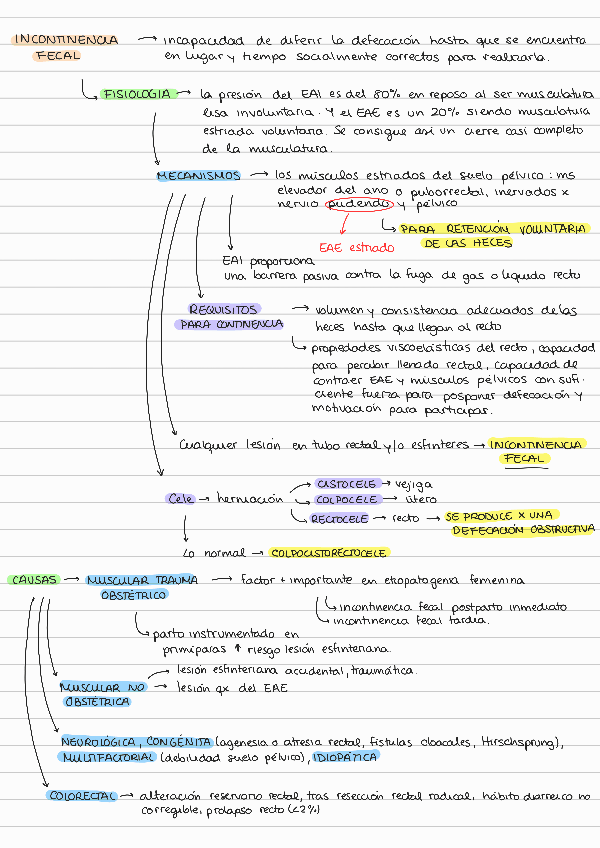 INCONTINENCIA FECAL → incapacidad de diferir la defecación hasta que se encuentra
en lugar y tiempo socialmente correctos para realizarla.
FISIOLOGIA → la presión del EAI es del 80% en reposo al ser musculatura
lisa involuntaria. Y el EAE es un 20% siendo musculatura
estriada voluntaria. Se consigue así un cierre casi completo
de la musculatura.
MECANISMOS → los músculos estriados del suelo pélvico: ms
elevador del ano o puborrectal, inervados x
nervio pudendo y pélvico
PARA RETENCIÓN VOLUNTARIA
DE LAS HECES
EAE estriado
EAI proporciona
una barrera pasiva contra la fuga de gas o líquido recto
REQUISITOS PARA CONTINENCIA → volumen y consistencia adecuados de las
heces hasta que llegan al recto
propiedades viscoelásticas del recto, capacidad
para percibir llenado rectal, capacidad de
contraer EAE y músculos pélvicos con sufi-
ciente fuerza para posponer defecación y
motivación para participar.
Cualquier lesión en tubo rectal y/o esfínteres → INCONTINENCIA
FECAL
Cele → herniación
CISTOCELE → vejiga
COLPOCELE → útero
RECTOCELE → recto → SE PRODUCE X UNA
DEFECACIÓN OBSTRUCTIVA
Lo normal → COLPOCISTORECTOCELE
CAUSAS → MUSCULAR TRAUMA OBSTÉTRICO → factor + importante en etiopatogenia femenina
incontinencia fecal postparto inmediato
incontinencia fecal tardía.
parto instrumentado en
primíparas ↑ riesgo lesión esfinteriana.
MUSCULAR NO OBSTÉTRICA
lesión esfinteriana accidental, traumática.
lesión qx del EAE
NEUROLÓGICA, CONGÉNITA (agenesia o atresia rectal, fístulas cloacales, Hirschsprung),
MULTIFACTORIAL (debilidad suelo pélvico), IDIOPÁTICA
COLORECTAL → alteración reservorio rectal, tras resección rectal radical, hábito diarreico no
corregible, prolapso recto (<2%)